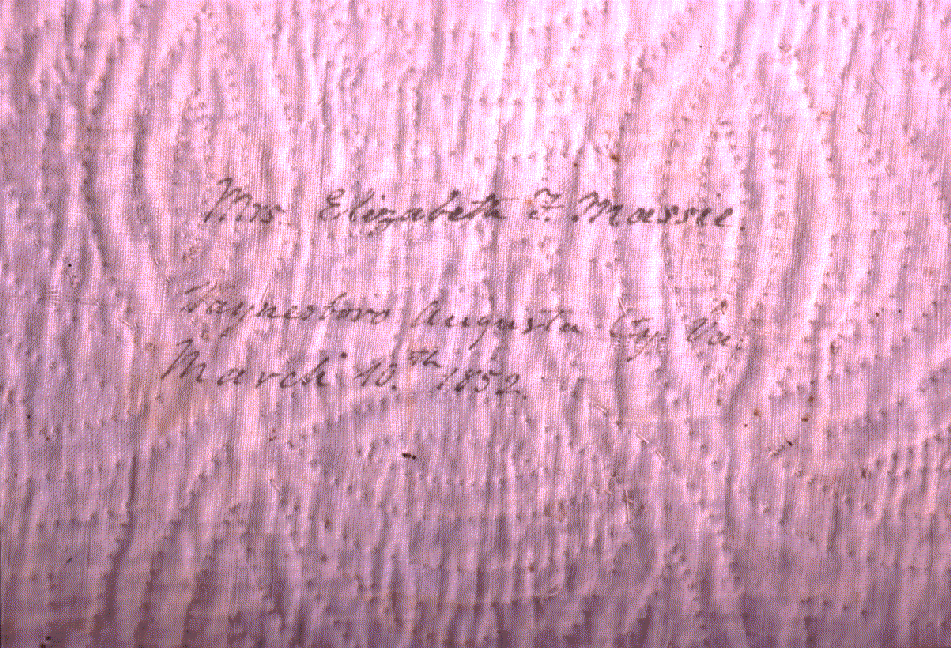 Mrs. Elizabeth F. Massie.
Waynesboro Augusta Cty. Va.
March 10.th 1852.